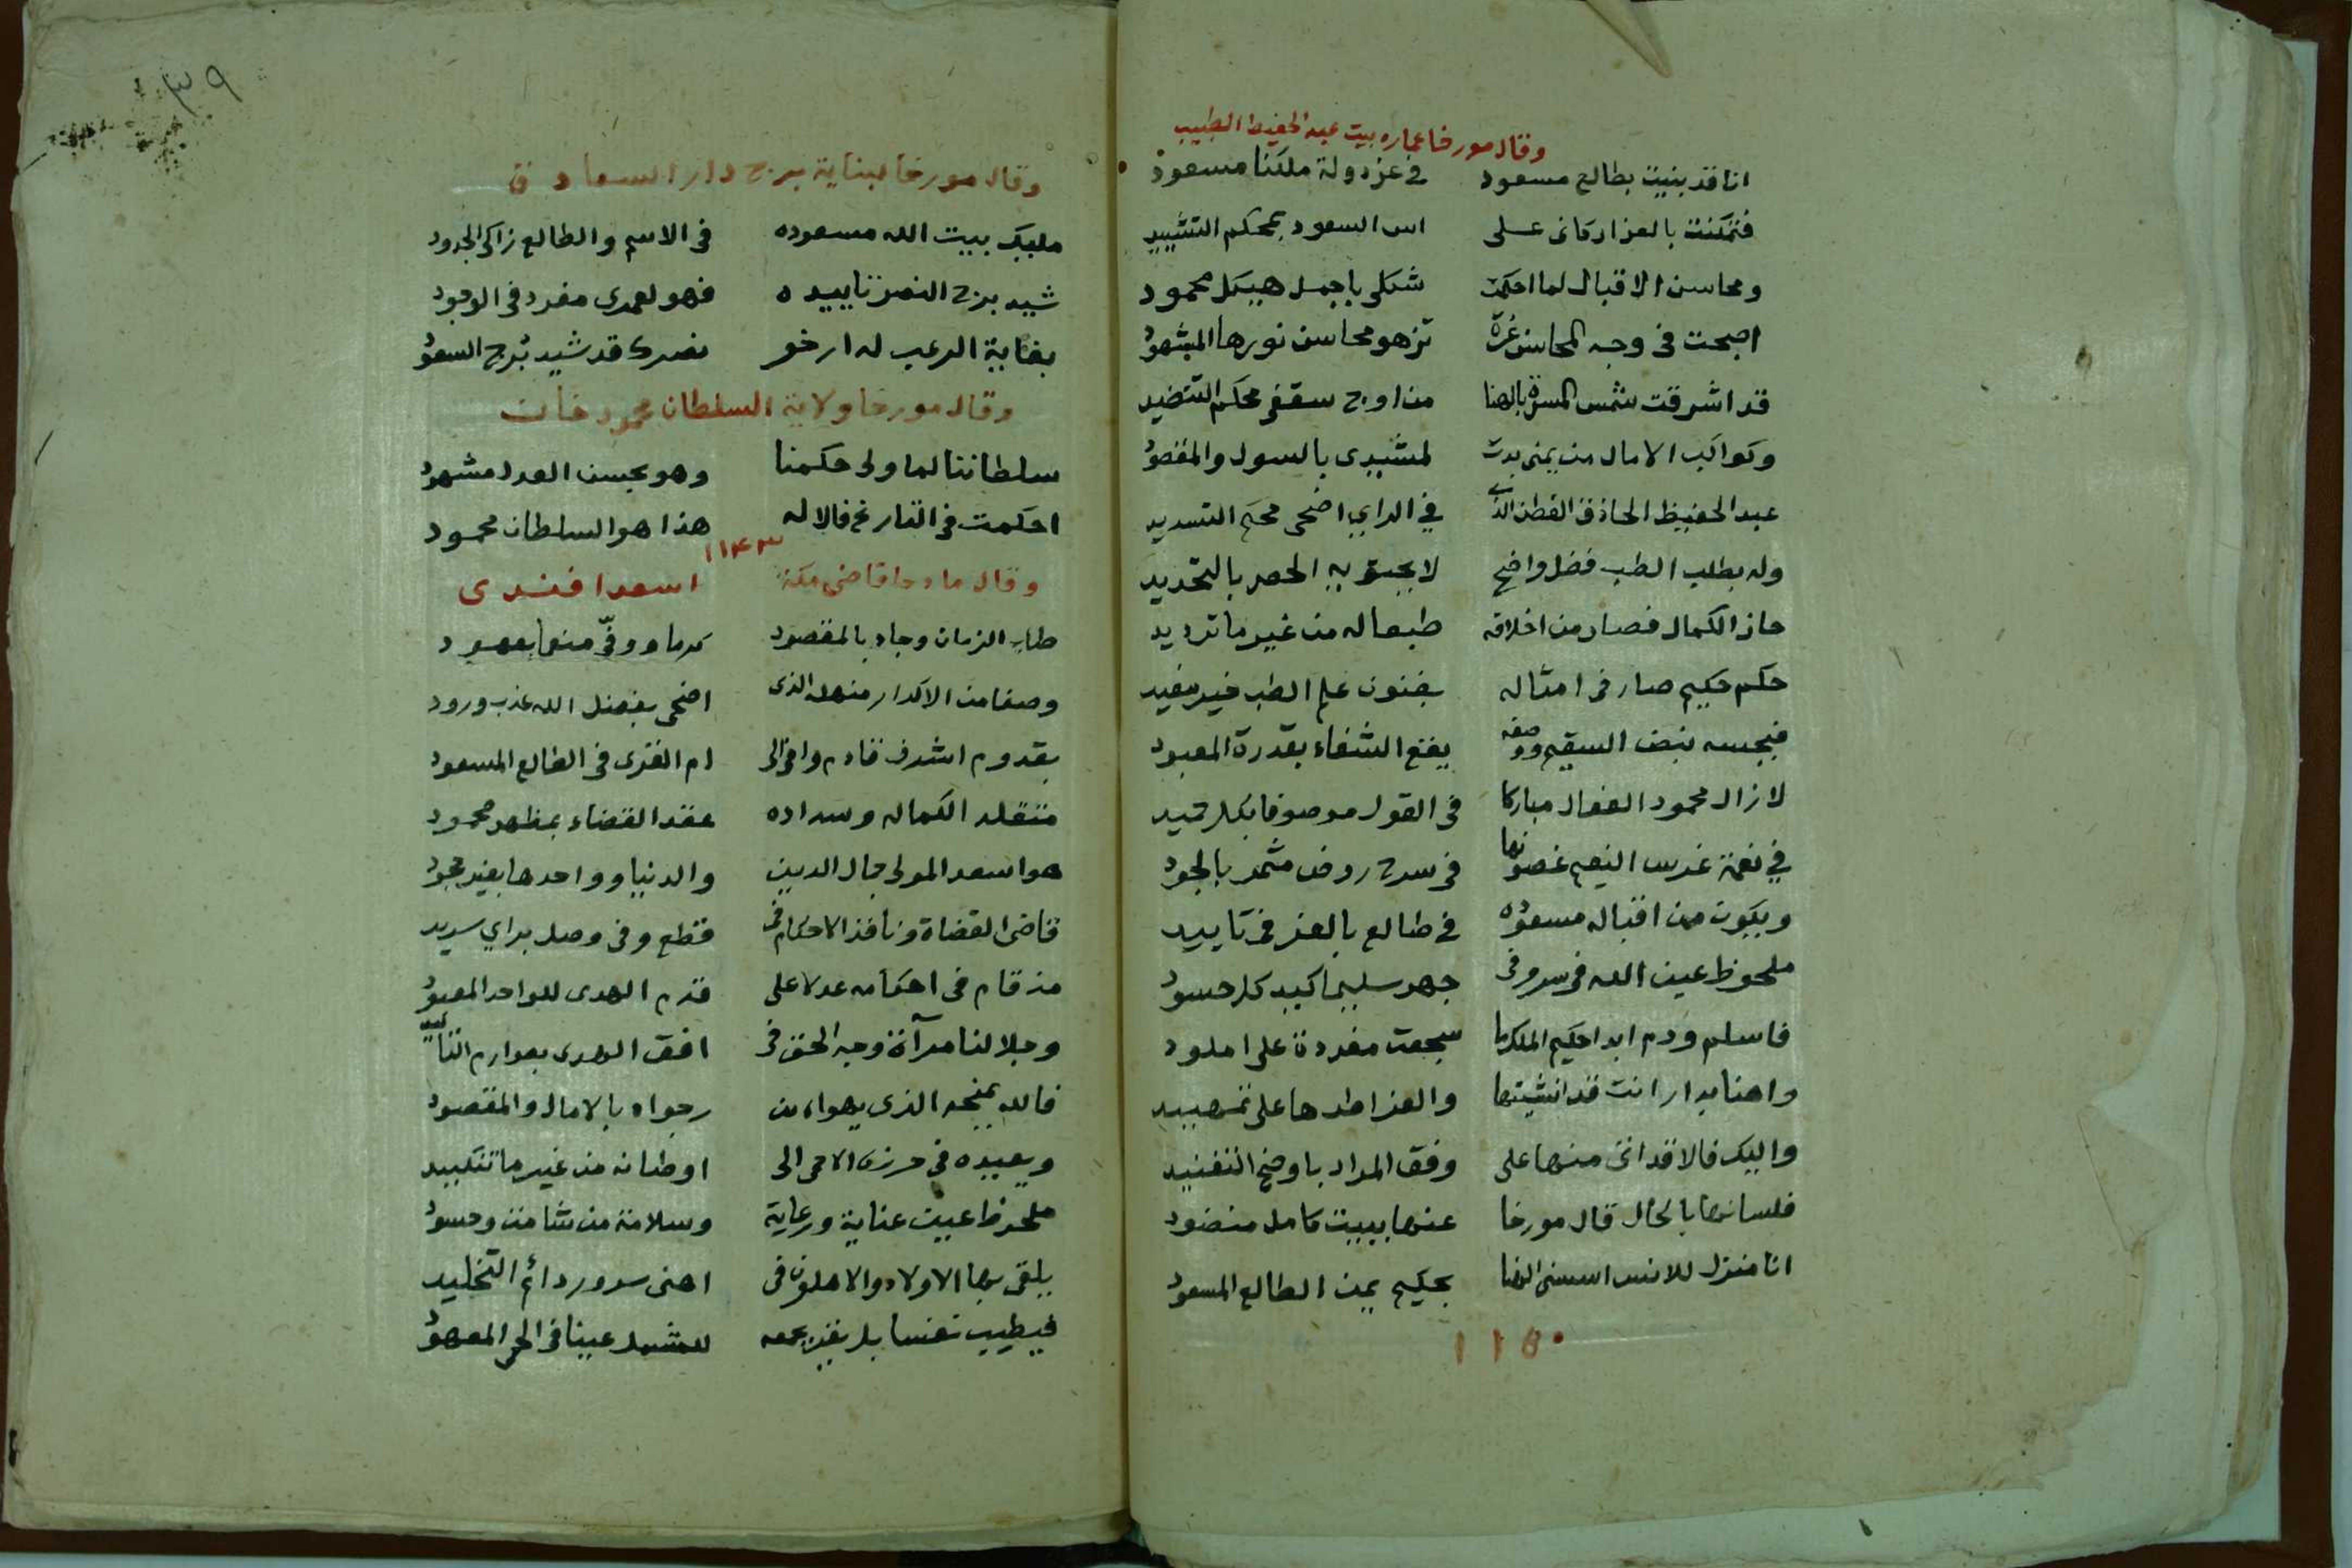 وقال مورخا عماره بيت عبد الحفيظ الطبيب
انا قد بنيت بطالع مسعود في عز دولة ملكنا مسعود
فتمكنت بالعز اركانى على اس السعود بمحكم التشييد
ومحاسن الاقبال لما احكمت شكلى باجمل هيكل محمود
اصبحت فى وجه المحاسن غرة تزهو محاسن نورها المشهود
قد اشرقت شمس المسرة بالهنا من اوج سقفى محكم التنضيد
وكواكب الامال من يمنى بدت لمشيدى بالسول والمقصود
عبد الحفيظ الحاذق الفطن الذى في الراي اضحى محكم التسديد
وله بطلب الطب فضل واضح لا يحتويه الحصر بالتحديد
حاز الكمال فصار من اخلاقه طبعا له من غير ما ترديد
حكم حكيم صار فى امثاله بفنون علم الطب خير مفيد
فبجسه نبض السقيم ووصفه يقع الشفاء بقدرة المعبود
لا زال محمود الفعال مباركا فى القول موصوفا بكل حميد
في نعمة غرس النعيم غصونها فى سرح روض مثمر بالجود
ويكون من اقباله مسعوده في طالع بالعز فى تاييد
ملحوظ عين الله فى سر وفى جهر سليما كيد كل حسود
فاسلم ودم ابدا حكيم الملك ما سجعت مغردة على املود
واهنا بدار انت قد انشيتها والعز اطدها على تمهيد
واليك فالا قد اتى منها على وفق المراد باوضح التفنيد
فلسانها بالحال قال مورخا عنها ببيت كامل منضود
انا منزل للانس اسسنى الهنا بحكيم يمن الطالع المسعود
١١٥٠
٣٩
وقال مورخا لبناية برج دار السعادة
مليك بيت الله مسعوده فى الاسم والطالع زاكى الجدود
شيد برج النصر تاييده فهو لعمرى مفرد فى الوجود
بغاية الرعب له ارخو نصرك قد شيد برج السعود
وقال مورخا ولاية السلطان محمود خان
سلطاننا لما ولى حكمنا وهو بحسن العدل مشهود
احكمت فى التاريخ فالا له هذا هو السلطان محمود
١١٤٣
وقال مادحا قاضى مكة اسعد افندى
طاب الزمان وجاد بالمقصود كرما ووفّى منعما بعهود
وصفا من الاكدار منهله الذى اضحى بفضل الله عذب ورود
بقدوم اشرف قادم وافى الى ام القرى فى الطالع المسعود
متقلد الكمال وسداده عقد القضاء بمظهر محمود
هو اسعد المولى جمال الدين والدنيا وواحدها بغير جحود
قاضى القضاة ونافذ الاحكام فى قطع وفى وصل براي سديد
مذ قام فى احكامه عدلا على قدم الهدى للواحد المعبود
وجلا لنا مرآة وجه الحق فى افق الهدى بصوارم التاييد
فالله يمنحه الذى يهواه من رجواه بالامال والمقصود
ويعيده فى حرزه الاحمى الى اوطانه من غير ما تنكيد
ملحوظ عين عناية ورعاية وسلامة من شامت وحسود
يلقى بها الاولاد والاهلون فى اهنى سرور دائم التخليد
فيطيب نفسا بل يقر بجمعه للشمل عينا فى الحمى المعهود